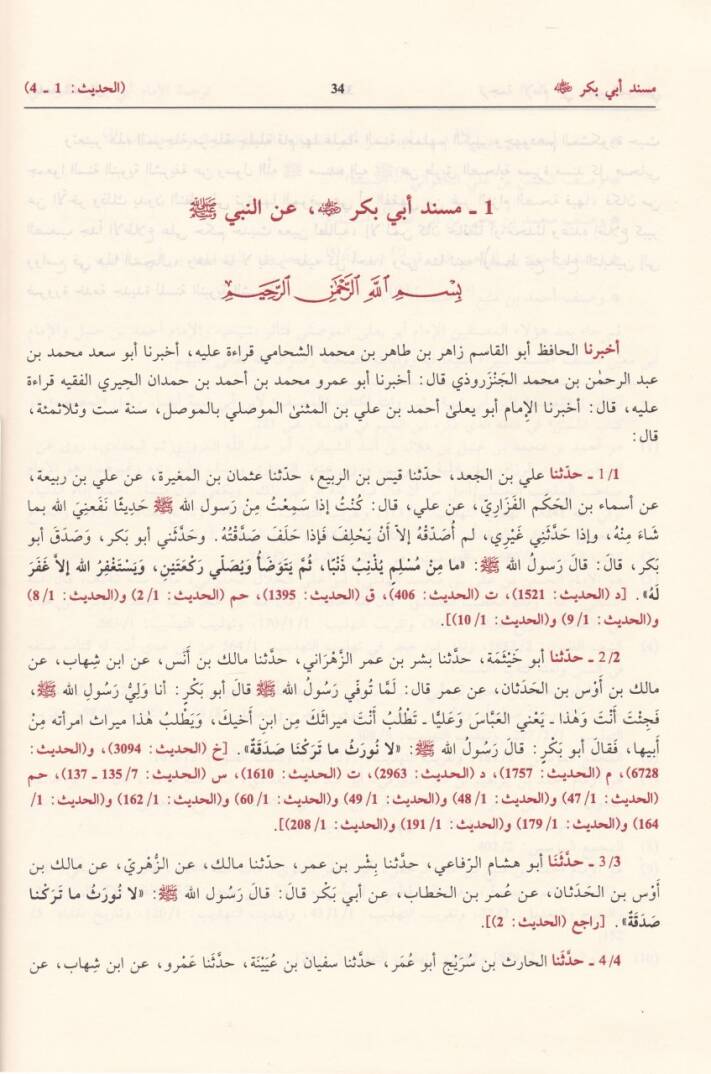 مسند أبي بكر رضي الله عنه 34 (الحديث: 1 ـ 4)
1 ـ مسند أبي بكر رضي الله عنه، عن النبي ﷺ
بِسْمِ اللَّهِ الرَّحْمَٰنِ الرَّحِيمِ
أخبرنا الحافظ أبو القاسم زاهر بن طاهر بن محمد الشحامي قراءة عليه، أخبرنا أبو سعد محمد بن
عبد الرحمٰن بن محمد الجَنْزَروذي قال: أخبرنا أبو عمرو محمد بن أحمد بن حمدان الحِيري الفقيه قراءة
عليه، قال: أخبرنا الإمام أبو يعلىٰ أحمد بن علي بن المثنىٰ الموصلي بالموصل، سنة ست وثلاثمئة،
قال:
1/1 ـ حدّثنا علي بن الجعد، حدّثنا قيس بن الربيع، حدّثنا عثمان بن المغيرة، عن علي بن ربيعة،
عن أسماء بن الحَكَم الفَزَاريّ، عن علي، قال: كُنْتُ إذا سَمِعْتُ مِنْ رَسولِ الله ﷺ حَدِيثًا نَفَعنِيَ الله بما
شَاءَ مِنْهُ، وإذا حَدَّثَنِي غَيْرِي، لم أُصَدِّقْهُ إلاَّ أنْ يَحْلِفَ فَإذا حَلَفَ صَدَّقْتُهُ. وحَدَّثَني أبو بَكر، وَصَدَقَ أبو
بَكر، قالَ: قالَ رَسولُ الله ﷺ: «ما مِنْ مُسْلِمٍ يُذْنِبُ ذَنْبًا، ثُمَّ يَتَوَضَأُ وَيُصَلِّي رَكْعَتَينِ، وَيَسْتَغْفِرُ الله إلاَّ غَفَرَ
لَهُ». [د (الحديث: 1521)، ت (الحديث: 406)، ق (الحديث: 1395)، حم (الحديث: 2/1) و(الحديث: 8/1)
و(الحديث: 9/1) و(الحديث: 10/1)].
2/2 ـ حدّثنا أبو خَيْثَمة، حدّثنا بشر بن عمر الزَّهْراني، حدّثنا مالك بن أَنَس، عن ابن شِهاب، عن
مالك بن أَوْس بن الحَدَثان، عن عمر قال: لَمَّا تُوفّي رَسُولُ الله ﷺ قالَ أبو بَكْرٍ: أنا وَلِيُّ رَسُولِ الله ﷺ،
فَجِئْتَ أَنْتَ وَهٰذا ـ يَعْني العَبَّاسَ وَعَليًّا ـ تَطْلُبُ أَنْتَ مِيراثَكَ مِن ابنِ أخيكَ، وَيَطْلُبُ هٰذا ميراث امرأته مِنْ
أبيها، فَقالَ أبو بَكْرٍ: قالَ رَسُولُ الله ﷺ: «لا نُورَثُ ما تَرَكْنَا صَدَقَةٌ». [خ (الحديث: 3094)، و(الحديث:
6728)، م (الحديث: 1757)، د (الحديث: 2963)، ت (الحديث: 1610)، س (الحديث: 135/7 ـ 137)، حم
(الحديث: 47/1) و(الحديث: 48/1) و(الحديث: 49/1) و(الحديث: 60/1) و(الحديث: 162/1) و(الحديث: 1/
164) و(الحديث: 179/1) و(الحديث: 191/1) و(الحديث: 208/1)].
3/3 ـ حدَّثَنَا أبو هشام الرفاعي، حدّثنا بِشْر بن عمر، حدّثنا مالك، عن الزُّهْريّ، عن مالك بن
أَوْس بن الحَدَثان، عن عُمر بن الخطاب، عن أبي بَكْر قالَ: قالَ رَسُول الله ﷺ: «لا نُورَثُ ما تَرَكنا
صَدَقَةٌ». [راجع (الحديث: 2)].
4/4 ـ حدَّثَنا الحارث بن سُرَيْج أبو عُمَر، حدّثنا سفيان بن عُيَيْنَة، حدَّثَنا عَمْرو، عن ابن شِهاب، عن